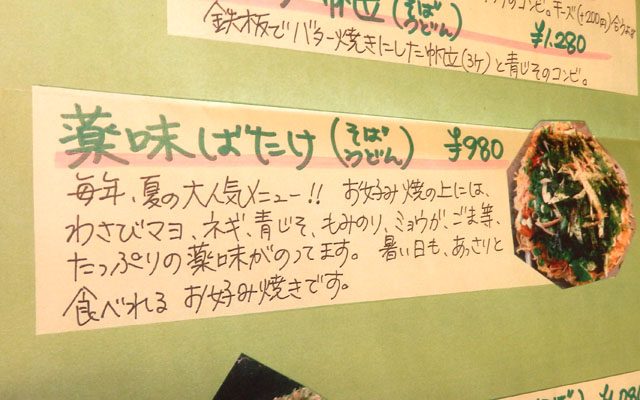 帆立(そば
うどん)
のコンビ。チーズ(+200円)合うよ
¥1,280
鉄板でバター焼きにした帆立(3ケ)と青じそのコンビ。
薬味ばたけ(そば
うどん) ¥980
毎年、夏の大人気メニュー!! お好み焼の上には、
わさびマヨ、ネギ、青じそ、もみのり、ミョウガ、ごま等、
たっぷりの薬味がのってます。 暑い日も、あっさりと
食べれる お好み焼きです。